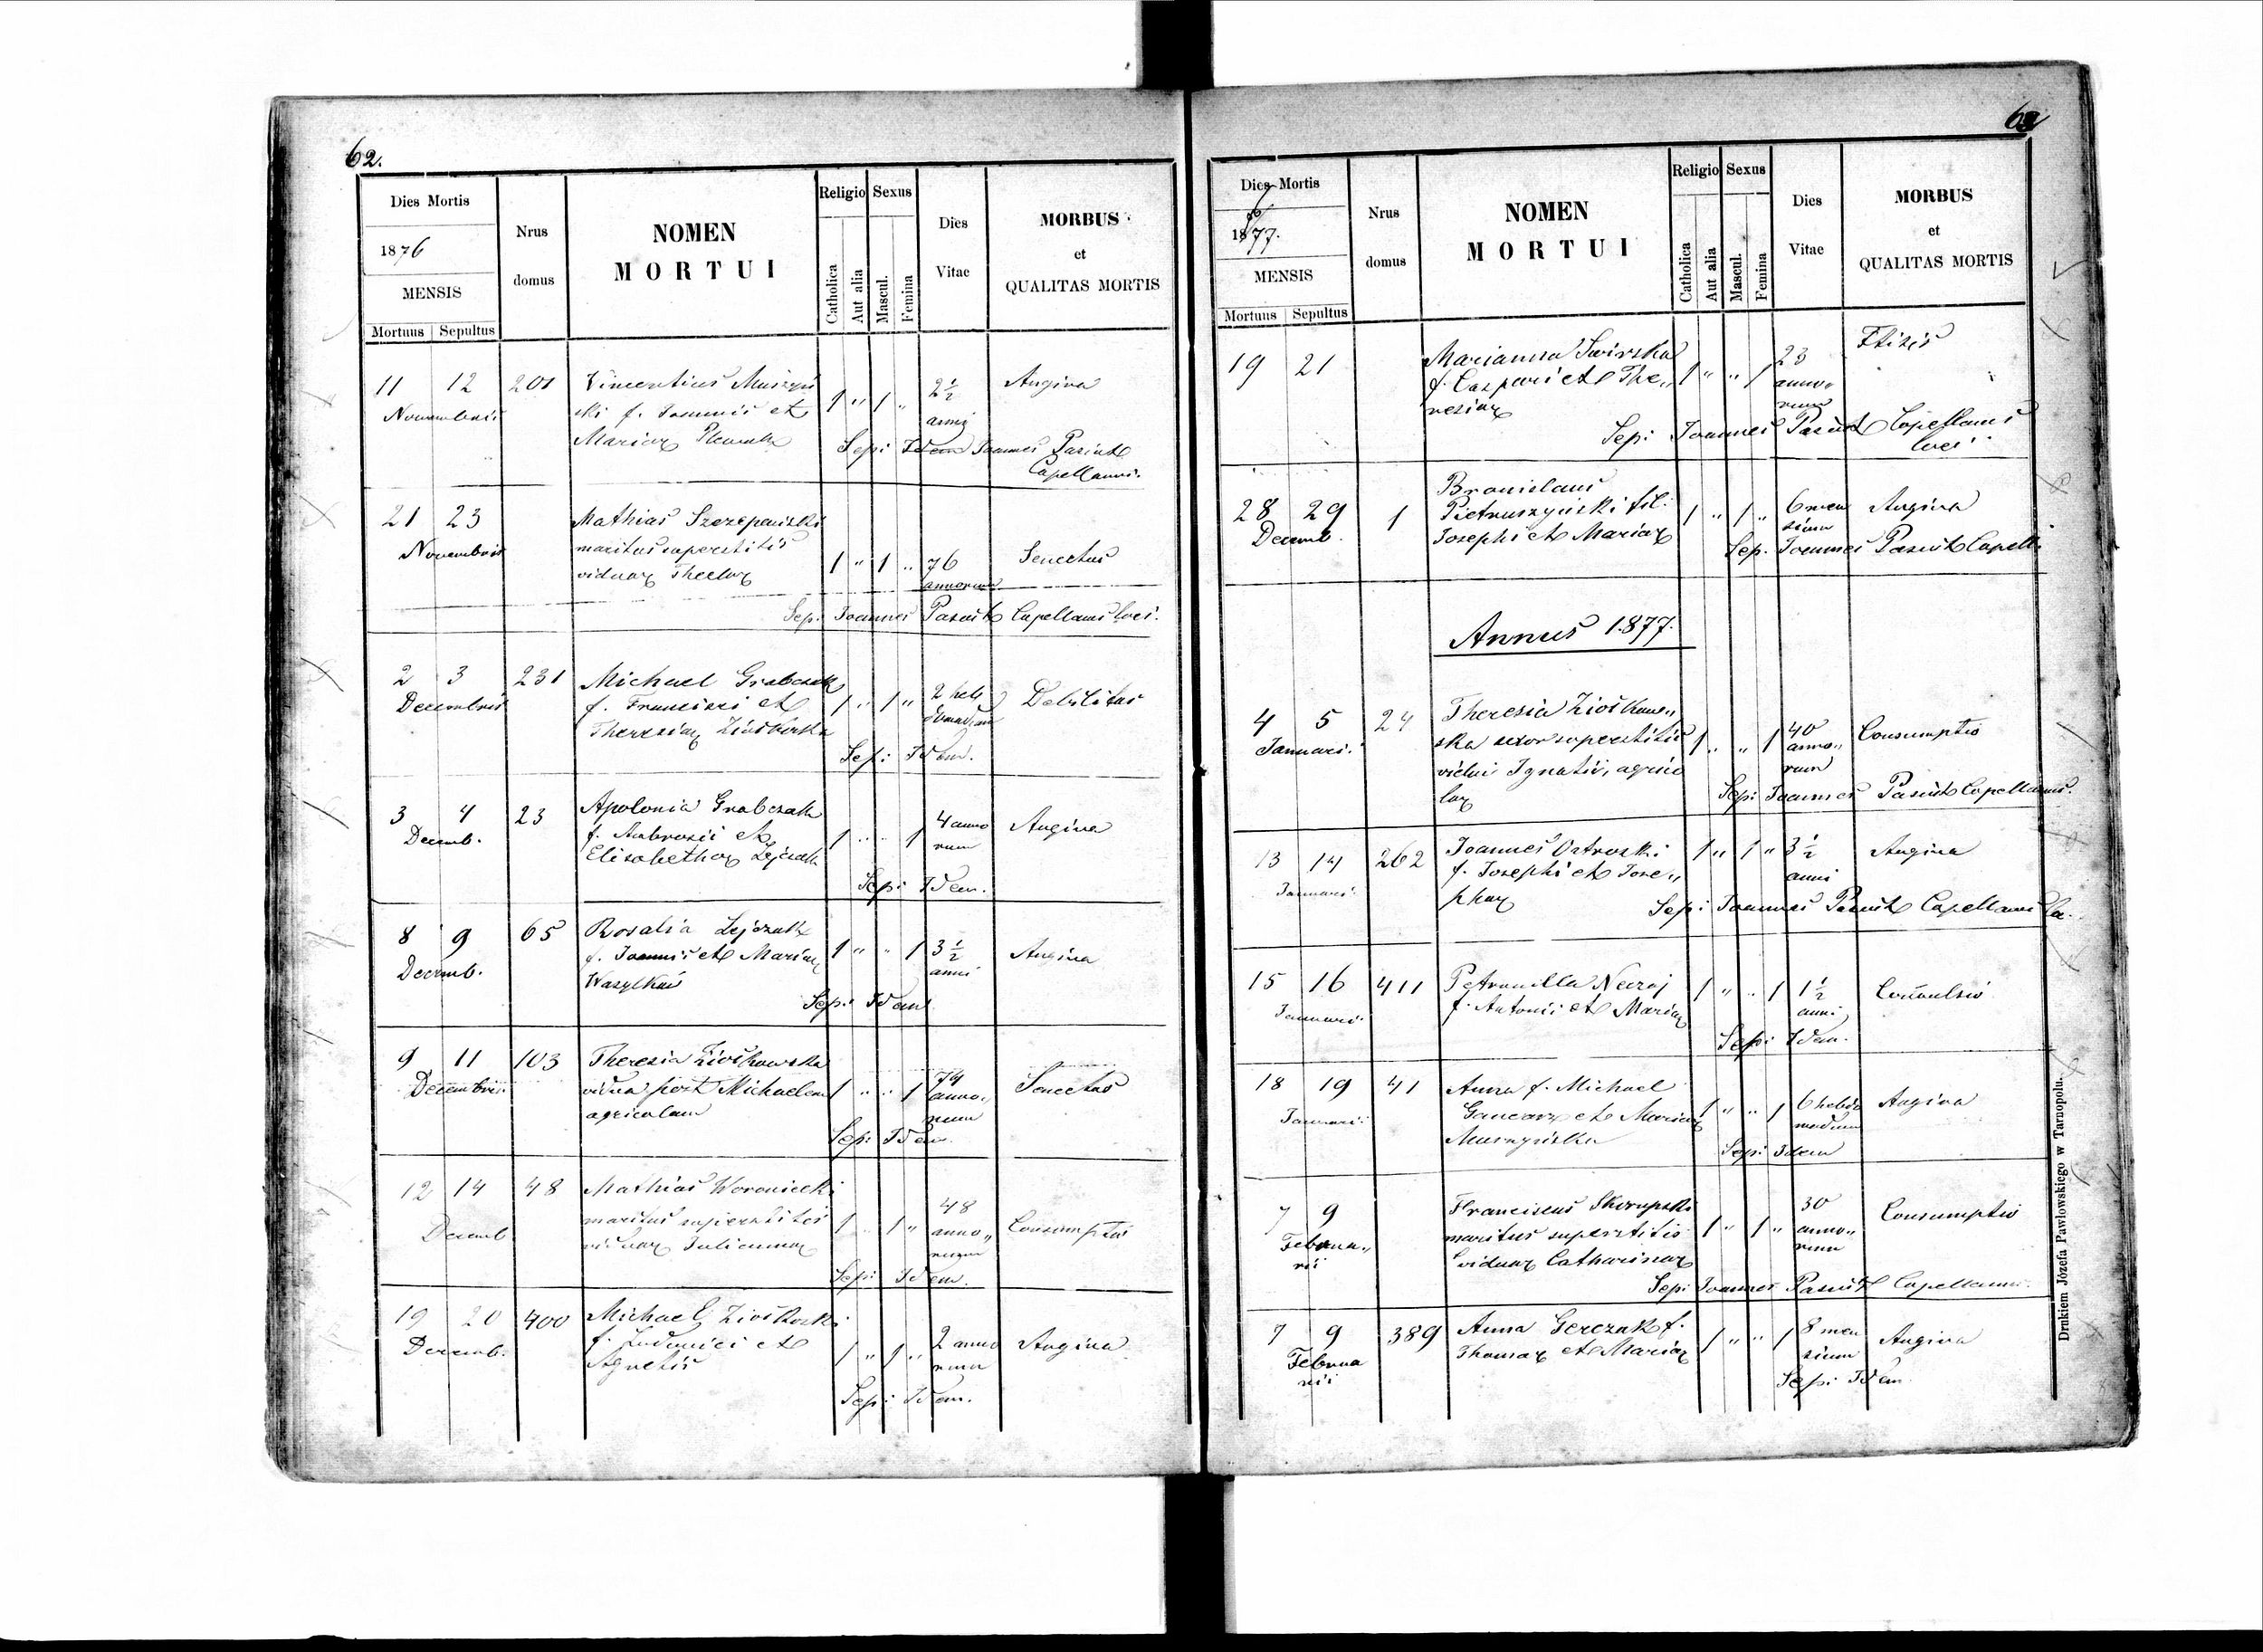 62.
Dies Mortis
1876
MENSIS
Mortuus Sepultus
Nrus
domus
NOMEN
MORTUI
Religio
Catholica
Aut alia
Sexus
Mascul.
Femina
Dies
Vitae
MORBUS
et
QUALITAS MORTIS
11 12 201 Vincentius Muszyń
Novembris
ski f. Joannis et
1 " 1 " 2½ anni Angina
Mariae
Sepi Idem Joannes Pasiut
Capellanus.
21 23 Mathias Szczepański
Novembris
maritus superstitis
viduae Theclae 1 " 1 " 76 annorum Senectus
Sep. Joannes Pasiut Capellanus loci.
2 3 231 Michael Grabczak
Decembris
f. Francisci et 1 " 1 " 2 heb
domadum Debilitas
Theresiae Ziółkoska
Sepi Idem.
3 4 23 Apolonia Grabczak
Decemb.
f. Ambrosii et 1 " " 1 4 anno
rum Angina
Elisabethae Lejczak
Sepi Idem.
8 9 65 Rosalia Lejczak
Decemb.
f. Joannis et Mariae 1 " " 1 3½ anni Angina
Wasylków
Sepi Idem
9 11 103 Theresia Ziółkowska
Decembris
vidua post Michaelem 1 " " 1 74 anno
rum Senectus
agricolam
Sepi Idem.
12 14 48 Mathias Woroniecki
Decemb
maritus superstitis 1 " 1 " 48 anno„
rum Consumptio
viduae Juliannae
Sepi Idem.
19 20 400 Michael Ziółkoski
Decemb.
f. Ludovici et 1 " 1 " 2 anno
rum Angina
Agnetis
Sepi Idem.
63
Dies Mortis
1877.
MENSIS
Mortuus Sepultus
Nrus
domus
NOMEN
MORTUI
Religio
Catholica
Aut alia
Sexus
Mascul.
Femina
Dies
Vitae
MORBUS
et
QUALITAS MORTIS
19 21 Marianna Swirska
f. Caspari et The„ 1 " " 1 23 anno„
rum Ftisis
resiae
Sepi Joannes Pasiut Capellanus
loci
28 29 1 Bronislaus
Decemb.
Pietruszyński fil. 1 " 1 " 6 men
sium Angina
Josephi et Mariae
Sep. Joannes Pasiut Capell.
Annus 1877.
4 5 24 Theresia Ziółkow„
Januari.
ska uxor superstitis 1 " " 1 40 anno„
rum Consumptio
vidui Ignatii, agrico
lae
Sepi Joannes Pasiut Capellanus.
13 14 262 Joannes Ostroski 1 " 1 " 3½ anni Angina
Januari.
f. Josephi et Jose„
phae
Sepi Joannes Pasiut Capellanus
15 16 411 Petronilla 1 " " 1 1½ anni
Januari.
f. Antonii et Mariae
Sepi Idem.
18 19 41 Anna f. Michael
Januari.
Gancarz et Mariae 1 " " 1 6 hebdo
madum Angina
Muszyńska
Sepi Idem
7 9 Franciscus Skorupski
Februa„
rii
maritus superstitis 1 " 1 " 30 anno„
rum Consumptio
viduae Catharinae
Sepi Joannes Pasiut Capellanus.
7 9 389 Anna Gerczak f.
Februa
rii
Thomae et Mariae 1 " " 1 8 men
sium Angina
Sepi Idem.
Drukiem Józefa Pawłowskiego w Tarnopolu.